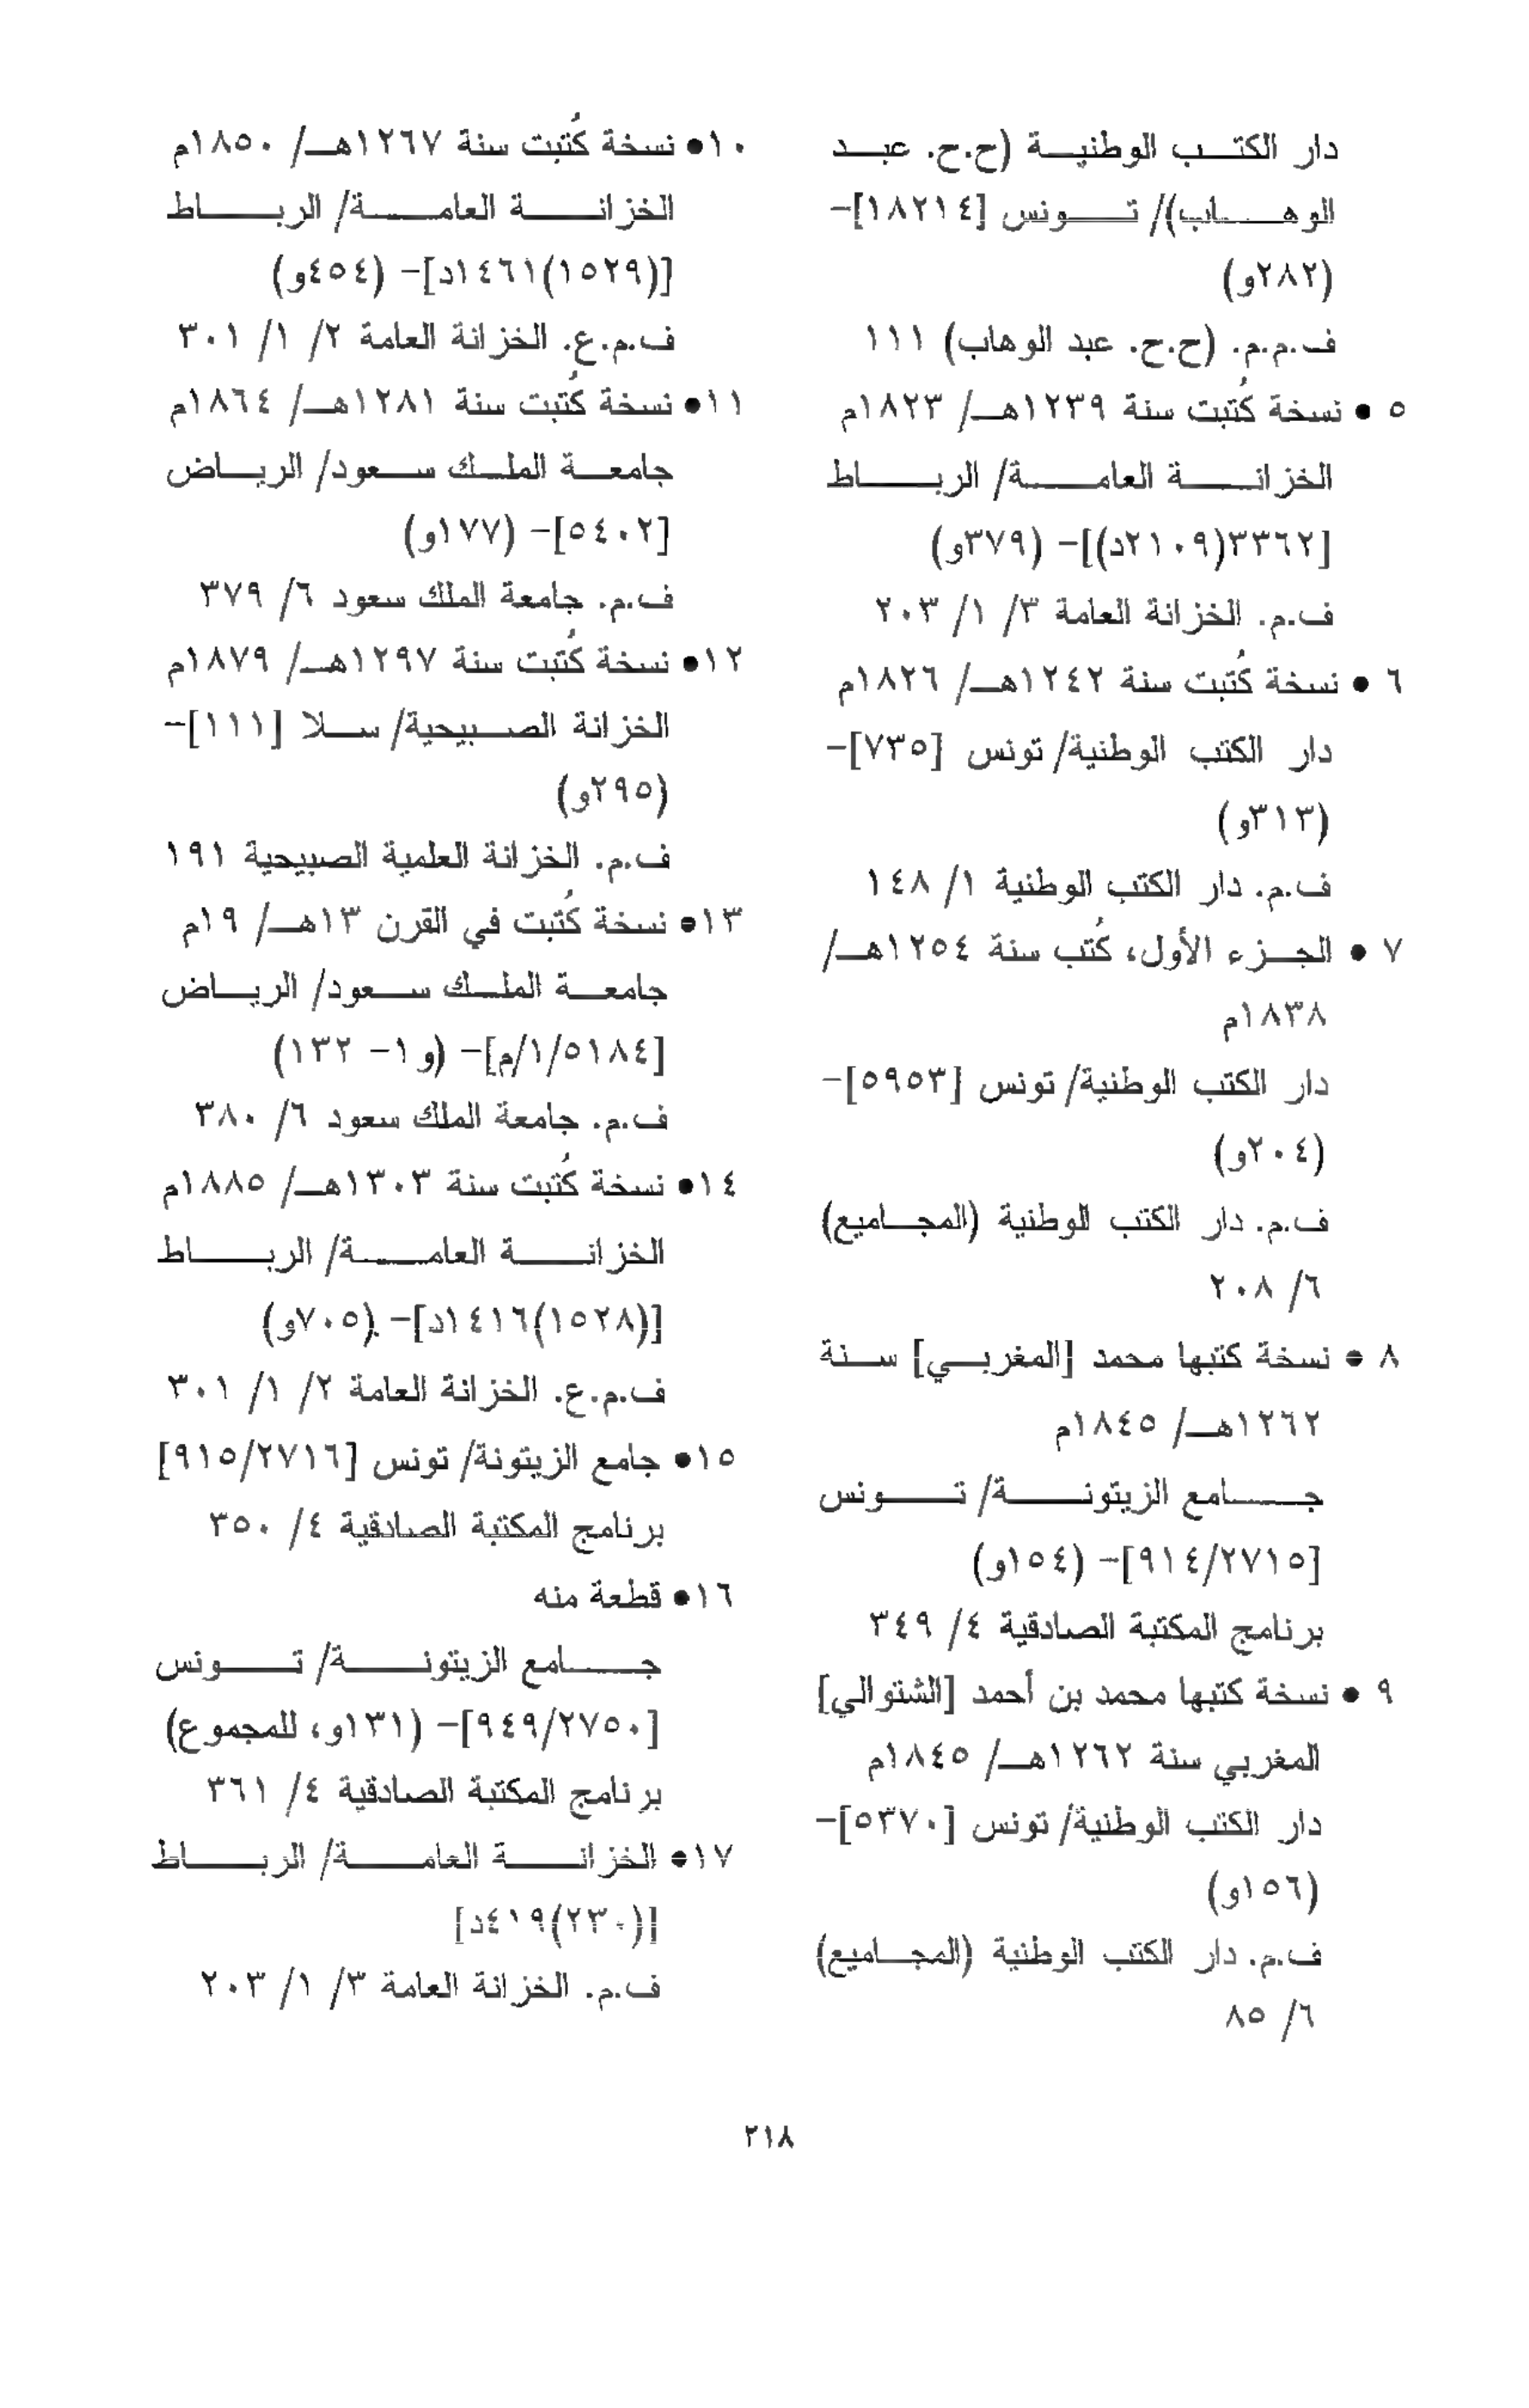 دار الكتب الوطنية (ح.ح. عبد
الوهاب)/ تونس [١٨٢١٤]-
(٢٨٢و)
ف.م.م. (ح.ح. عبد الوهاب) ١١١
٥ • نسخة كُتبت سنة ١٢٣٩هـ/ ١٨٢٣م
الخزانة العامة/ الرباط
[٣٣٦٢(٢١٠٩د)]- (٣٧٩و)
ف.م. الخزانة العامة ٣/ ١/ ٢٠٣
٦ • نسخة كُتبت سنة ١٢٤٢هـ/ ١٨٢٦م
دار الكتب الوطنية/ تونس [٧٣٥]-
(٣١٣و)
ف.م. دار الكتب الوطنية ١/ ١٤٨
٧ • الجزء الأول، كُتب سنة ١٢٥٤هـ/
١٨٣٨م
دار الكتب الوطنية/ تونس [٥٩٥٣]-
(٢٠٤و)
ف.م. دار الكتب الوطنية (المجاميع)
٦/ ٢٠٨
٨ • نسخة كتبها محمد [المغربي] سنة
١٢٦٢هـ/ ١٨٤٥م
جامع الزيتونة/ تونس
[٩١٤/٢٧١٥]- (١٥٤و)
برنامج المكتبة الصادقية ٤/ ٣٤٩
٩ • نسخة كتبها محمد بن أحمد [الشتوالي]
المغربي سنة ١٢٦٢هـ/ ١٨٤٥م
دار الكتب الوطنية/ تونس [٥٣٧٠]-
(١٥٦و)
ف.م. دار الكتب الوطنية (المجاميع)
٦/ ٨٥
١٠• نسخة كُتبت سنة ١٢٦٧هـ/ ١٨٥٠م
الخزانة العامة/ الرباط
[(١٥٢٩)١٤٦١د]- (٤٥٤و)
ف.م.ع. الخزانة العامة ٢/ ١/ ٣٠١
١١• نسخة كُتبت سنة ١٢٨١هـ/ ١٨٦٤م
جامعة الملك سعود/ الرياض
[٥٤٠٢]- (١٧٧و)
ف.م. جامعة الملك سعود ٦/ ٣٧٩
١٢• نسخة كُتبت سنة ١٢٩٧هـ/ ١٨٧٩م
الخزانة الصبيحية/ سلا [١١١]-
(٢٩٥و)
ف.م. الخزانة العلمية الصبيحية ١٩١
١٣• نسخة كُتبت في القرن ١٣هـ/ ١٩م
جامعة الملك سعود/ الرياض
[٥١٨٤/١/م]- (و١- ١٣٢)
ف.م. جامعة الملك سعود ٦/ ٣٨٠
١٤• نسخة كُتبت سنة ١٣٠٣هـ/ ١٨٨٥م
الخزانة العامة/ الرباط
[(١٥٢٨)١٤١٦د]- (٧٠٥و)
ف.م.ع. الخزانة العامة ٢/ ١/ ٣٠١
١٥• جامع الزيتونة/ تونس [٩١٥/٢٧١٦]
برنامج المكتبة الصادقية ٤/ ٣٥٠
١٦• قطعة منه
جامع الزيتونة/ تونس
[٩٤٩/٢٧٥٠]- (١٣١و، للمجموع)
برنامج المكتبة الصادقية ٤/ ٣٦١
١٧• الخزانة العامة/ الرباط
[(٢٣٠)٤١٩د]
ف.م. الخزانة العامة ٣/ ١/ ٢٠٣
٢١٨